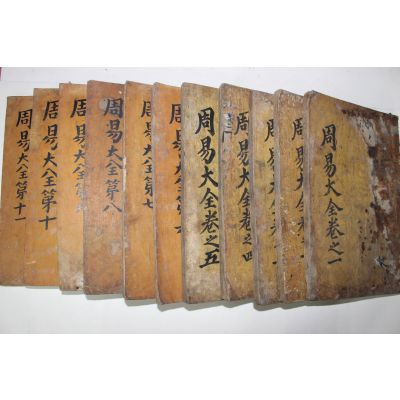 周易大全卷之一
周易大全卷
周易大全卷
周易大全卷之四
周易大全卷之五
大全第六
周易大全第七
周易大全第八
周易大全第
周易大全第十
周易大全第十一